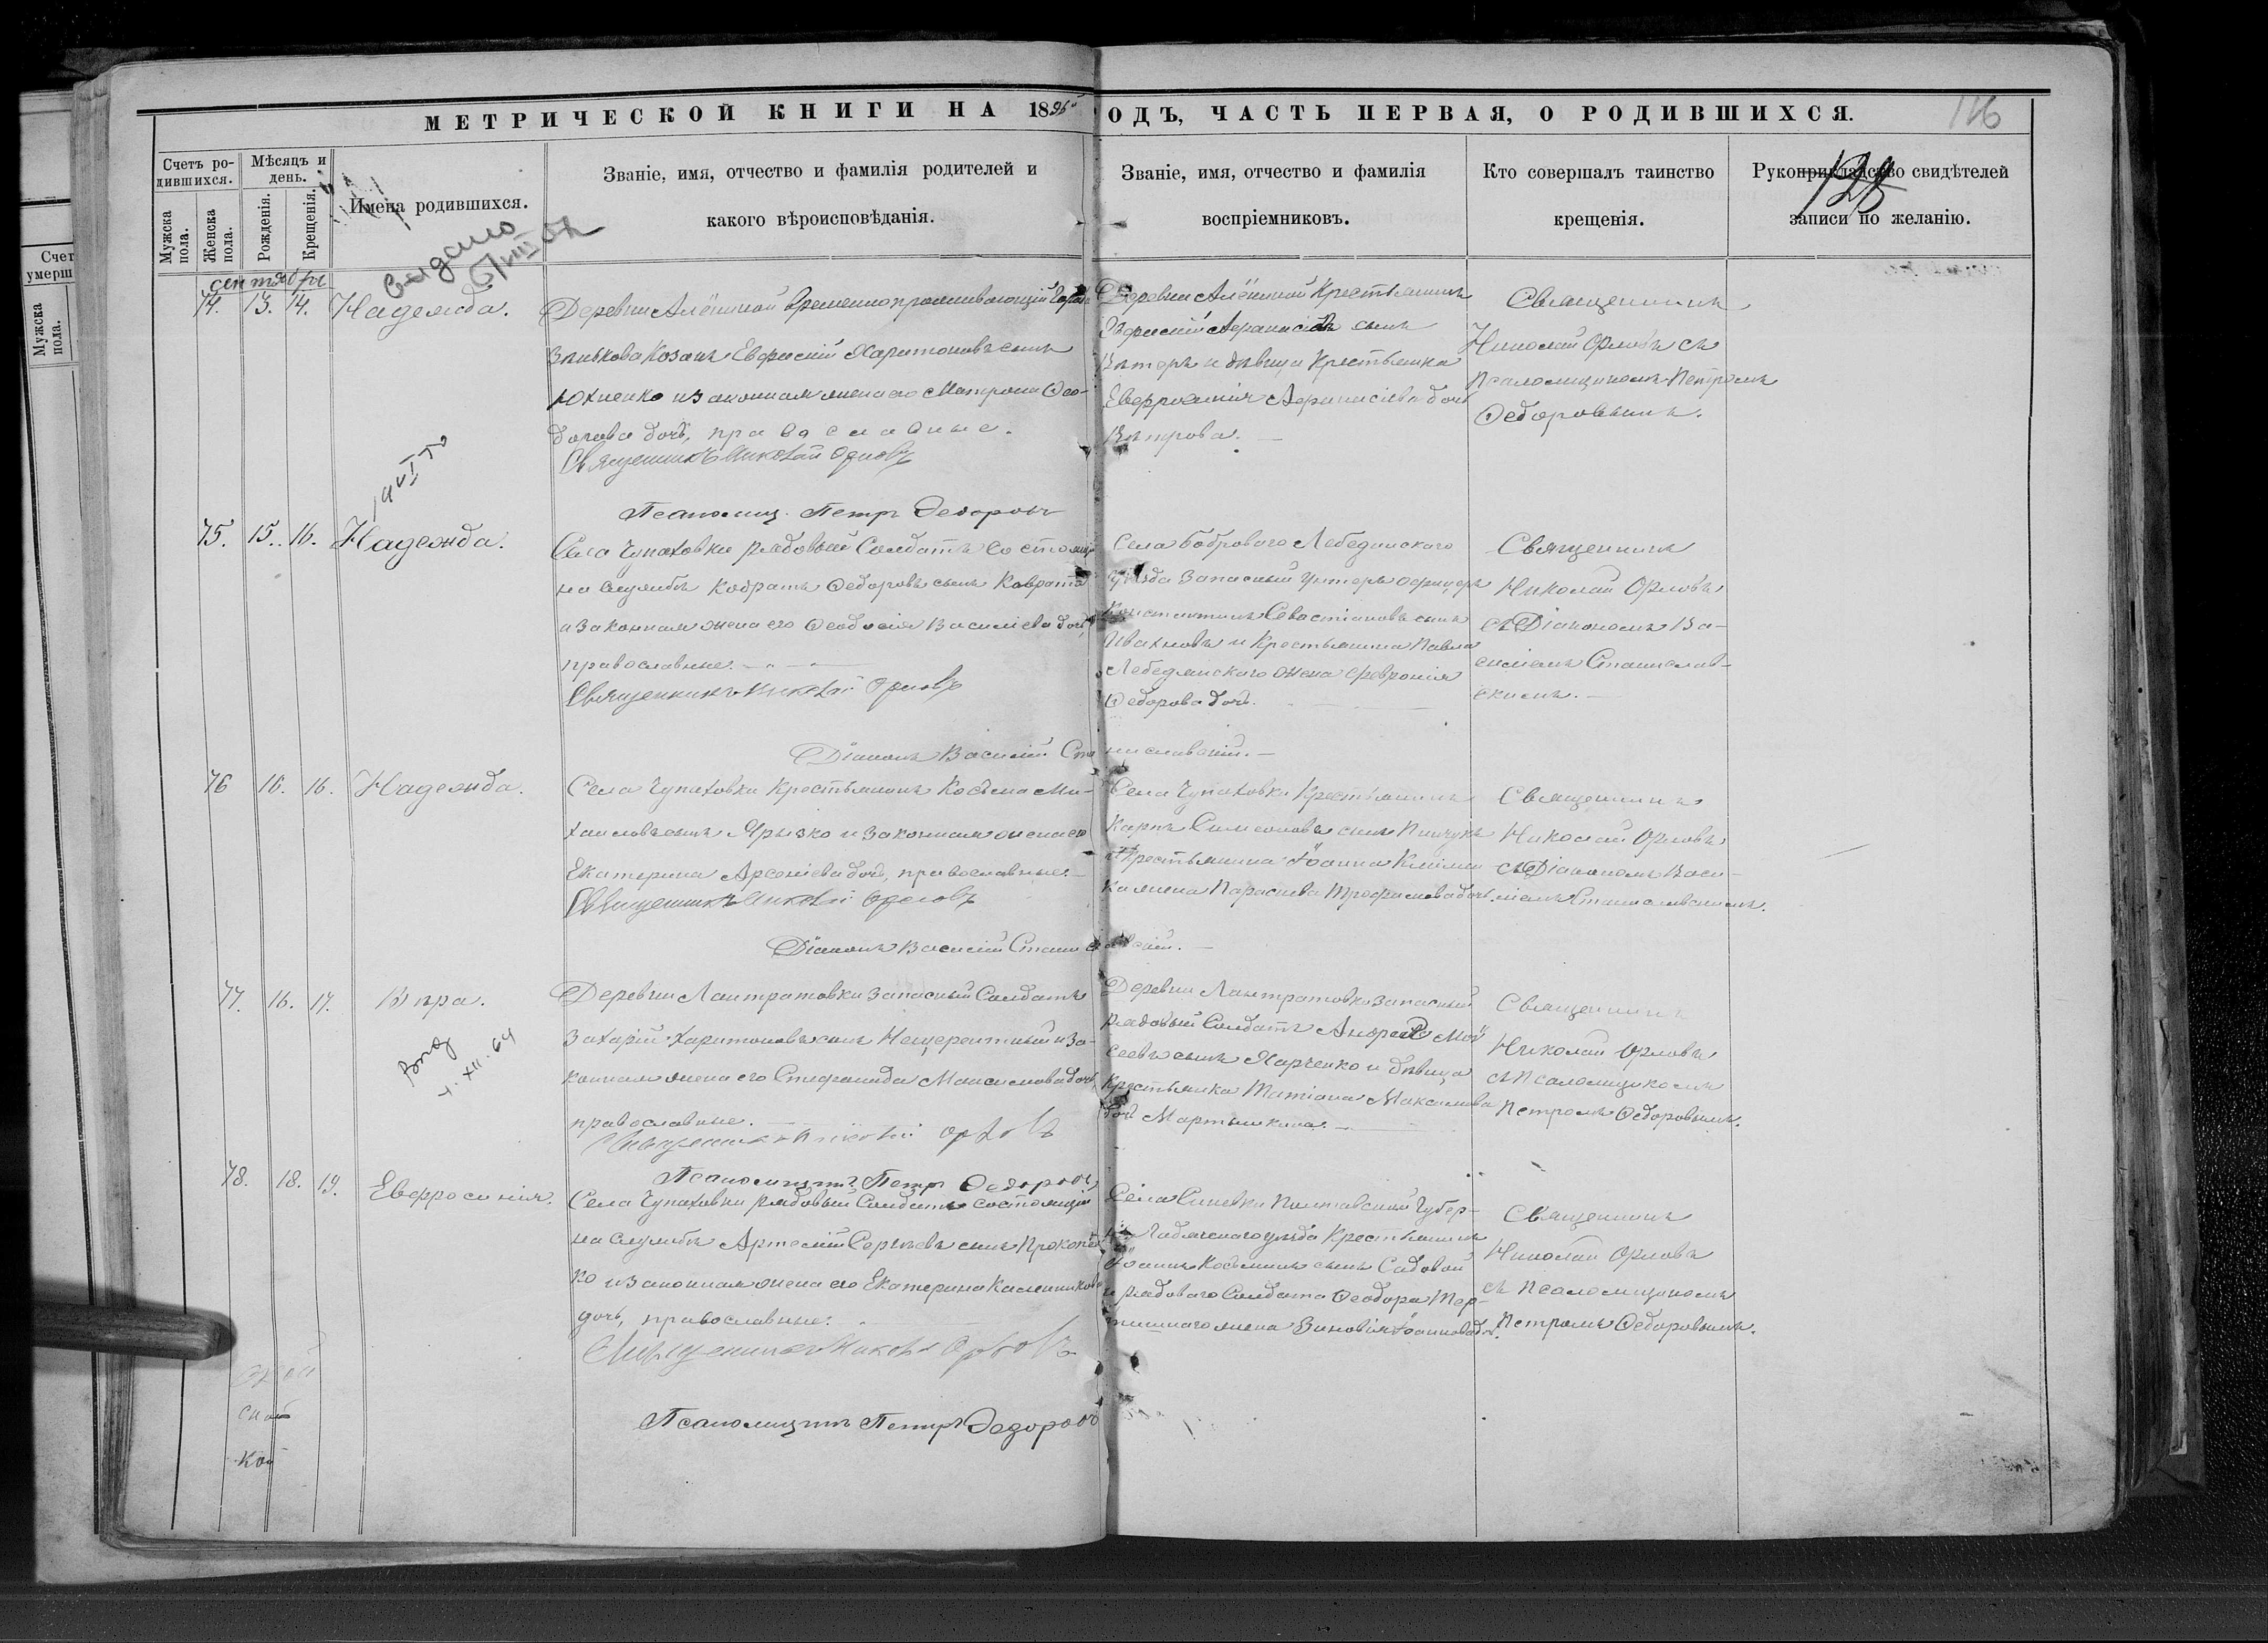 МЕТРИЧЕСКОЙ КНИГИ НА 1895 ОДЪ, ЧАСТЬ ПЕРВАЯ, О РОДИВШИХСЯ.
116
Счетъ родившихся.
Мужска пола.
Женска пола.
Мѣсяцъ и день.
Рожденія.
Крещенія.
Имена родившихся.
Званіе, имя, отчество и фамилія родителей и
какого вѣроисповѣданія.
Званіе, имя, отчество и фамилія
воспріемниковъ.
Кто совершалъ таинство
крещенія.
Рукоприкладство свидѣтелей
записи по желанію.
Счет
умерш
Мужска пола.
сентябрь
выдано
74. 13. 14. Надежда.
Деревни Алёшиной временно проживающій
Зѣнькова Козакъ Евфисій Харитоновъ сынъ
Юхненко и законная жена его Матрона Ѳео-
дорова дочь, православные.
Священникъ Николай Орловъ
Псаломщ. Петръ Ѳедоровъ
Деревни Алёшиной Крестьянинъ
Аѳанасіевъ сынъ
Вѣтеръ и дѣвица Крестьянка
Евфросинія Аѳанасіева дочь
Вѣтрова.
Священникъ
Николай Орловъ съ
Псаломщикомъ Петромъ
Ѳедоровымъ.
75. 15. 16. Надежда.
Села Чупаховки рядовый Солдатъ состоящій
на службѣ Кодратъ Ѳедоровъ сынъ
а законная жена его Ѳеодосія Василіева дочь,
православные.
Священникъ Николай Орловъ
Діаконъ Василій Станиславскій.
Села Боброваго Лебединскаго
уѣзда Запасный Унтеръ офицеръ
Константинъ Севастіановъ сынъ
Ивахновъ и Крестьянина Павла
Лебедянского жена Февронія
Ѳедорова дочь.
Священникъ
Николай Орловъ
съ Діакономъ Ва-
силіемъ Станислав-
скимъ.
76 16. 16. Надежда.
Села Чупаховки Крестьянинъ Косьма Ми-
хаиловъ сынъ Ярызко и законная жена его
Екатерина Арсеніева дочь, православные.
Священникъ Николай Орловъ
Діаконъ Василій Станиславскій.
Села Чупаховки Крестьянинъ
Карпъ Симеоновъ сынъ Пинчукъ
и Крестьянина Іоанна Климен
ка жена Параскева Трофимова дочь.
Священникъ
Николай Орловъ
съ Діакономъ Васи-
ліемъ Станиславскимъ.
77. 16. 17. Вѣра.
4. XII. 64
Деревни Лантратовки запасный Солдатъ
Захарій Харитоновъ сынъ Нещеретный и за-
конная жена его Стефанида Максимова дочь,
православные.
Священникъ Николай Орловъ
Псаломщикъ Петръ Ѳедоровъ
Деревни Лантратовки запасный
рядовый Солдатъ Андрей Мои
сеевъ сынъ Харченко и дѣвица
Крестьянка Татіана Максимова
дочь Мартынкина.
Священникъ
Николай Орловъ
съ Псаломщикомъ
Петромъ Ѳедоровымъ.
78. 18. 19. Евфросинія.
Села Чупаховки рядовый Солдатъ состоящій
на службѣ Артемій Сергѣевъ сынъ Прокопен
ко и законная жена его Екатерина Каленникова
дочь, православные.
Священникъ Николай Орловъ
Псаломщикъ Петръ Ѳедоровъ
Села Синевки Полтавской Губер-
ніи Гадячскаго уѣзда Крестьянинъ
Іоаннъ Косьминъ сынъ Садовой
и рядоваго Солдата Ѳеодора Тер-
тишнаго жена Зиновія Іоаннова дочь.
Священникъ
Николай Орловъ
съ Псаломщикомъ
Петромъ Ѳедоровымъ.
ской
кой